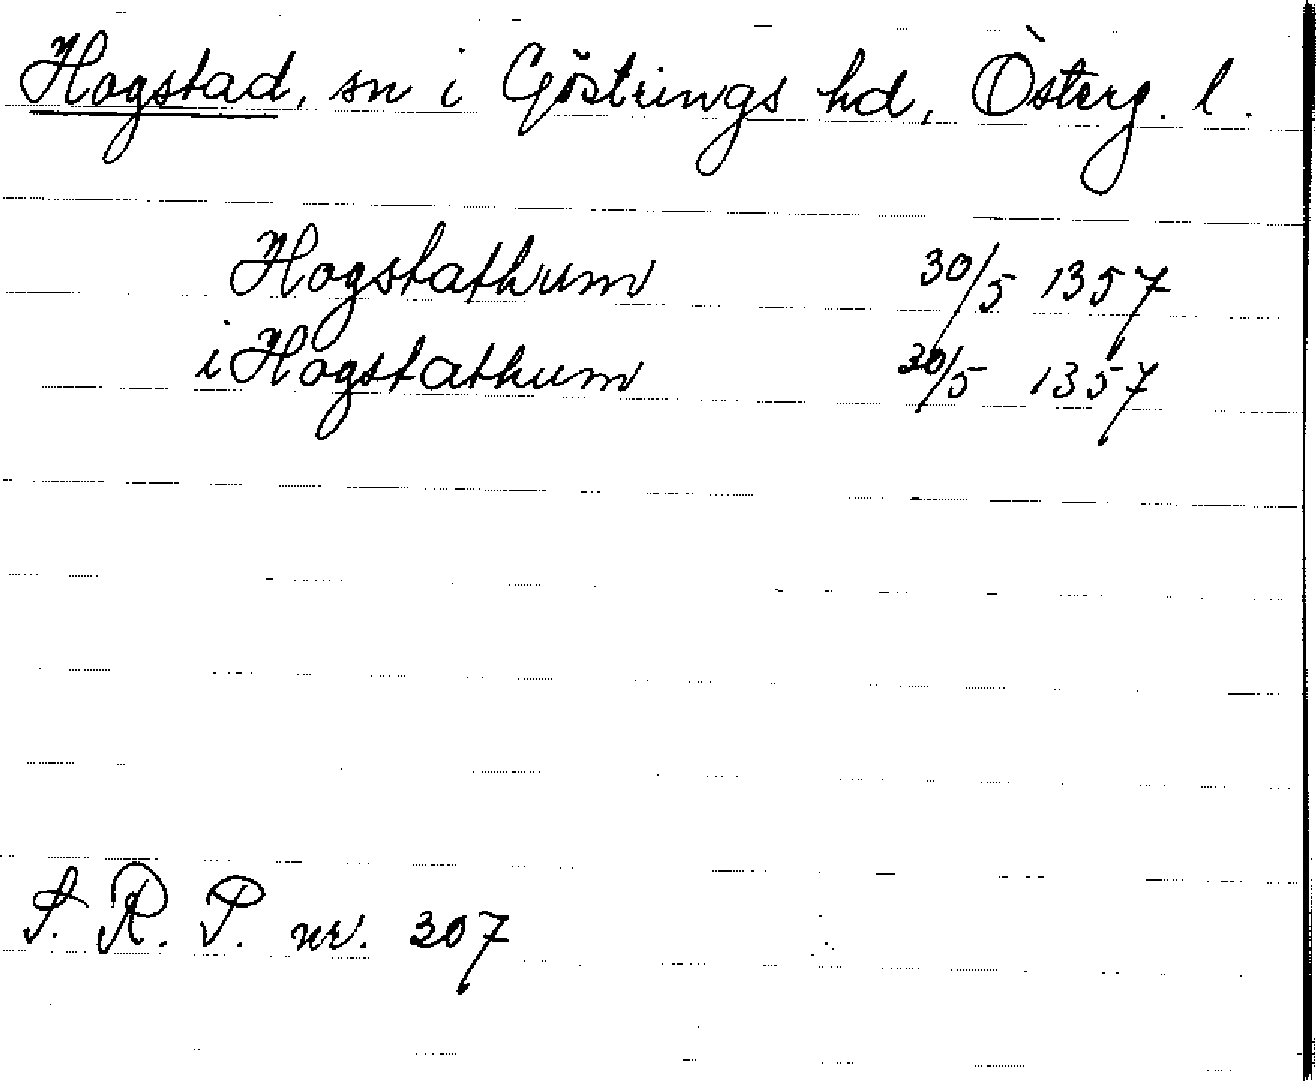 Hogstad, sn i Göstrings hd, Österg. l.
Hogstathum 30/5 1357
i Hogstathum 30/5 1357
S. R. P. nr. 307